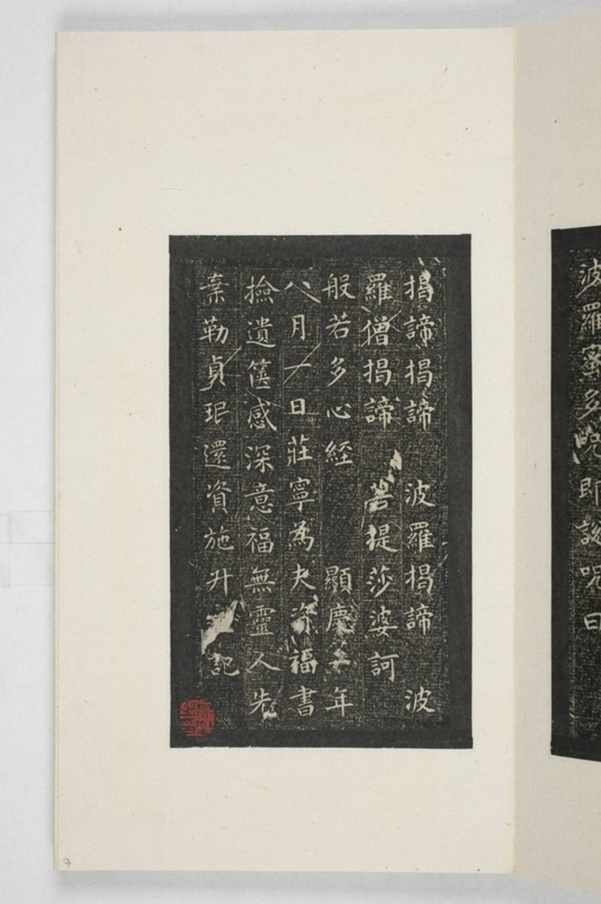 波羅蜜多呪即說呪曰
揭諦揭諦 波羅揭諦 波
羅僧揭諦 菩提莎婆訶
般若多心経 顯慶 年
八月一日莊寧為夫 福書
撿遺篋感深意福無靈人先
棄勒貞珉還資施升 記